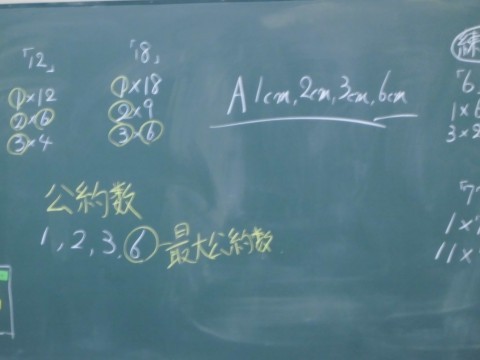 「12」
1×12
2×6
3×4
「18」
1×18
2×9
3×6
A 1cm, 2cm, 3cm, 6cm
公約数
1, 2, 3, 6 最大公約数
練
「6
1×6
3×2
「7
1×
11×